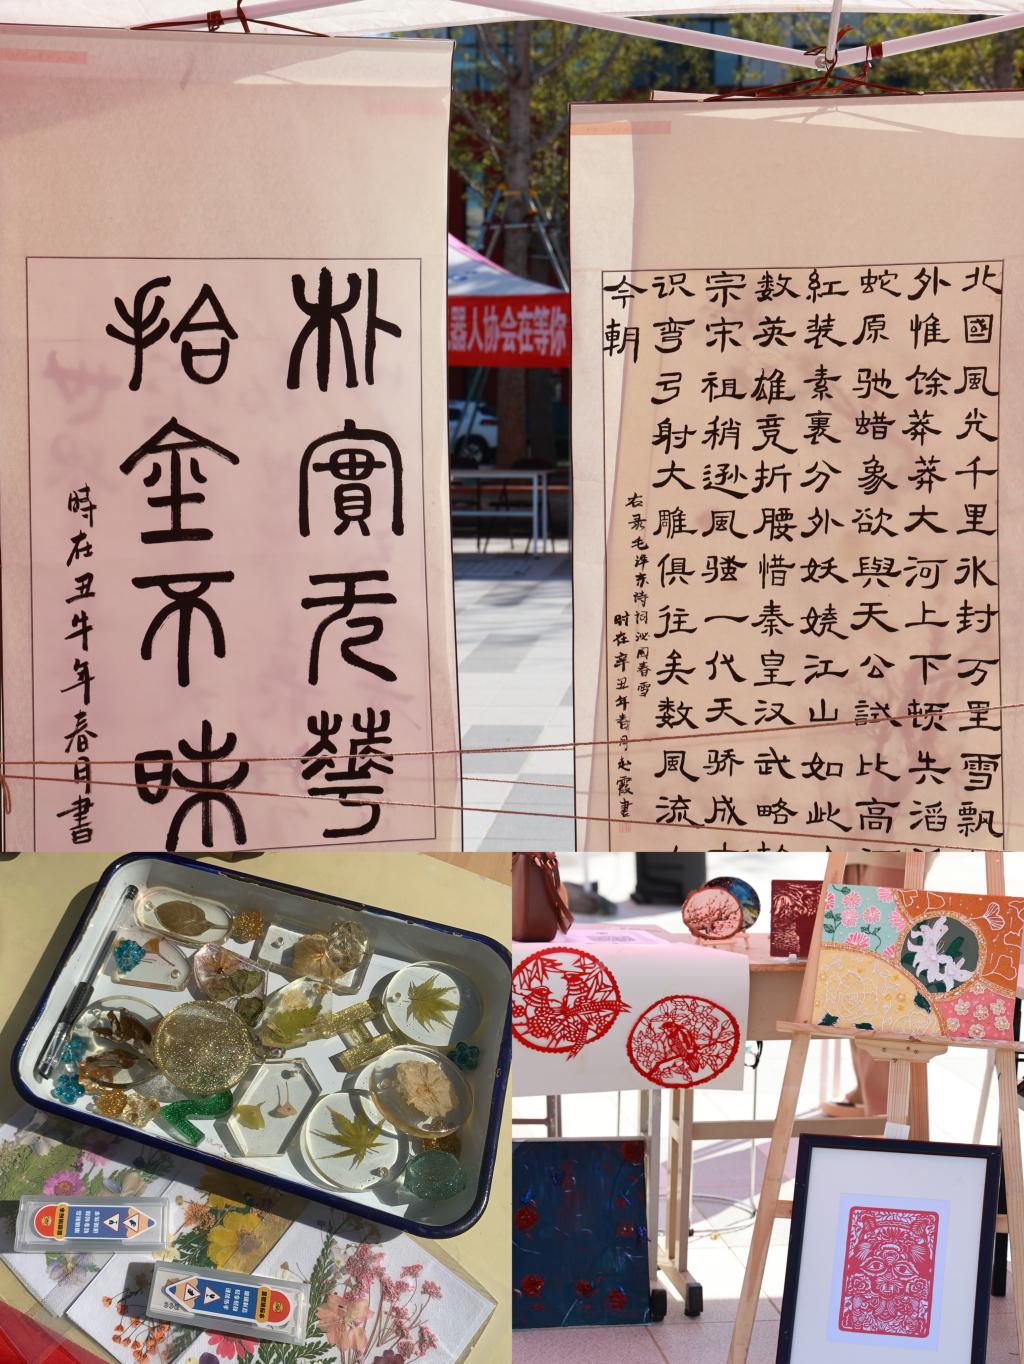 朴實无華
拾金不昧
時在丑牛年春月書
器人协会在等你
北國風光千里氷封万里雪飘
外惟馀莽莽大河上下顿失滔
蛇原驰蜡象欲與天公試比高
紅装素裹分外妖娆江山如此
数英雄竞折腰惜秦皇汉武略
宗宋祖稍逊風骚一代天骄成
识弯弓射大雕俱往矣数風流
今朝
右录毛泽东诗词沁园春雪
时在辛丑年春月赵霞書